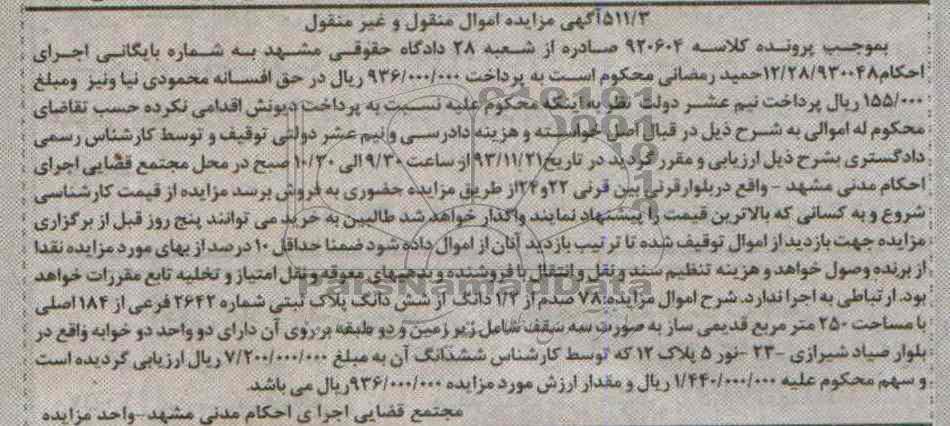 ۵۱۱/۳آگهی مزایده اموال منقول و غیر منقول
بموجب پرونده کلاسه ۹۲۰۶۰۴ صادره از شعبه ۲۸ دادگاه حقوقی مشهد به شماره بایگانی اجرای
احکام۱۲/۲۸/۹۳۰۰۴۸حمید رمضانی محکوم است به پرداخت ۹۳۶/۰۰۰/۰۰۰ ریال در حق افسانه محمودی نیا ونیز ومبلغ
۱۵۵/۰۰۰ ریال پرداخت نیم عشر دولت نظر به اینکه محکوم علیه نسبت به پرداخت دیونش اقدامی نکرده حسب تقاضای
محکوم له اموالی به شرح ذیل در قبال اصل خواسته و هزینه دادرسی و نیم عشر دولتی توقیف و توسط کارشناس رسمی
دادگستری بشرح ذیل ارزیابی و مقرر گردید در تاریخ۹۳/۱۱/۲۱از ساعت ۹/۳۰ الی ۱۰/۳۰ صبح در محل مجتمع قضایی اجرای
احکام مدنی مشهد - واقع دربلوارقرنی بین قرنی ۲۲و۲۴از طریق مزایده حضوری به فروش برسد مزایده از قیمت کارشناسی
شروع و به کسانی که بالاترین قیمت را پیشنهاد نمایند واگذار خواهد شد طالبین به خرید می توانند پنج روز قبل از برگزاری
مزایده جهت بازدید از اموال توقیف شده تا ترتیب بازدید آنان از اموال داده شود ضمنا حداقل ۱۰ درصد از بهای مورد مزایده نقدا
از برنده وصول خواهد و هزینه تنظیم سند و نقل و انتقال با فروشنده و بدهیهای معوقه و نقل امتیاز و تخلیه تابع مقررات خواهد
بود. ارتباطی به اجرا ندارد. شرح اموال مزایده: ۷۸ صدم از ۱/۲ دانگ از شش دانگ پلاک ثبتی شماره ۲۶۴۲ فرعی از ۱۸۴ اصلی
با مساحت ۲۵۰ متر مربع قدیمی ساز به صورت سه سقف شامل زیر زمین و دو طبقه بر روی آن دارای دو واحد دو خوابه واقع در
بلوار صیاد شیرازی -۲۳ -نور ۵ پلاک ۱۲ که توسط کارشناس ششدانگ آن به مبلغ ۷/۲۰۰/۰۰۰/۰۰۰ ریال ارزیابی گردیده است
و سهم محکوم علیه ۱/۴۴۰/۰۰۰/۰۰۰ ریال و مقدار ارزش مورد مزایده ۹۳۶/۰۰۰/۰۰۰ریال می باشد.
مجتمع قضایی اجرا ی احکام مدنی مشهد-واحد مزایده
ParsNamadData